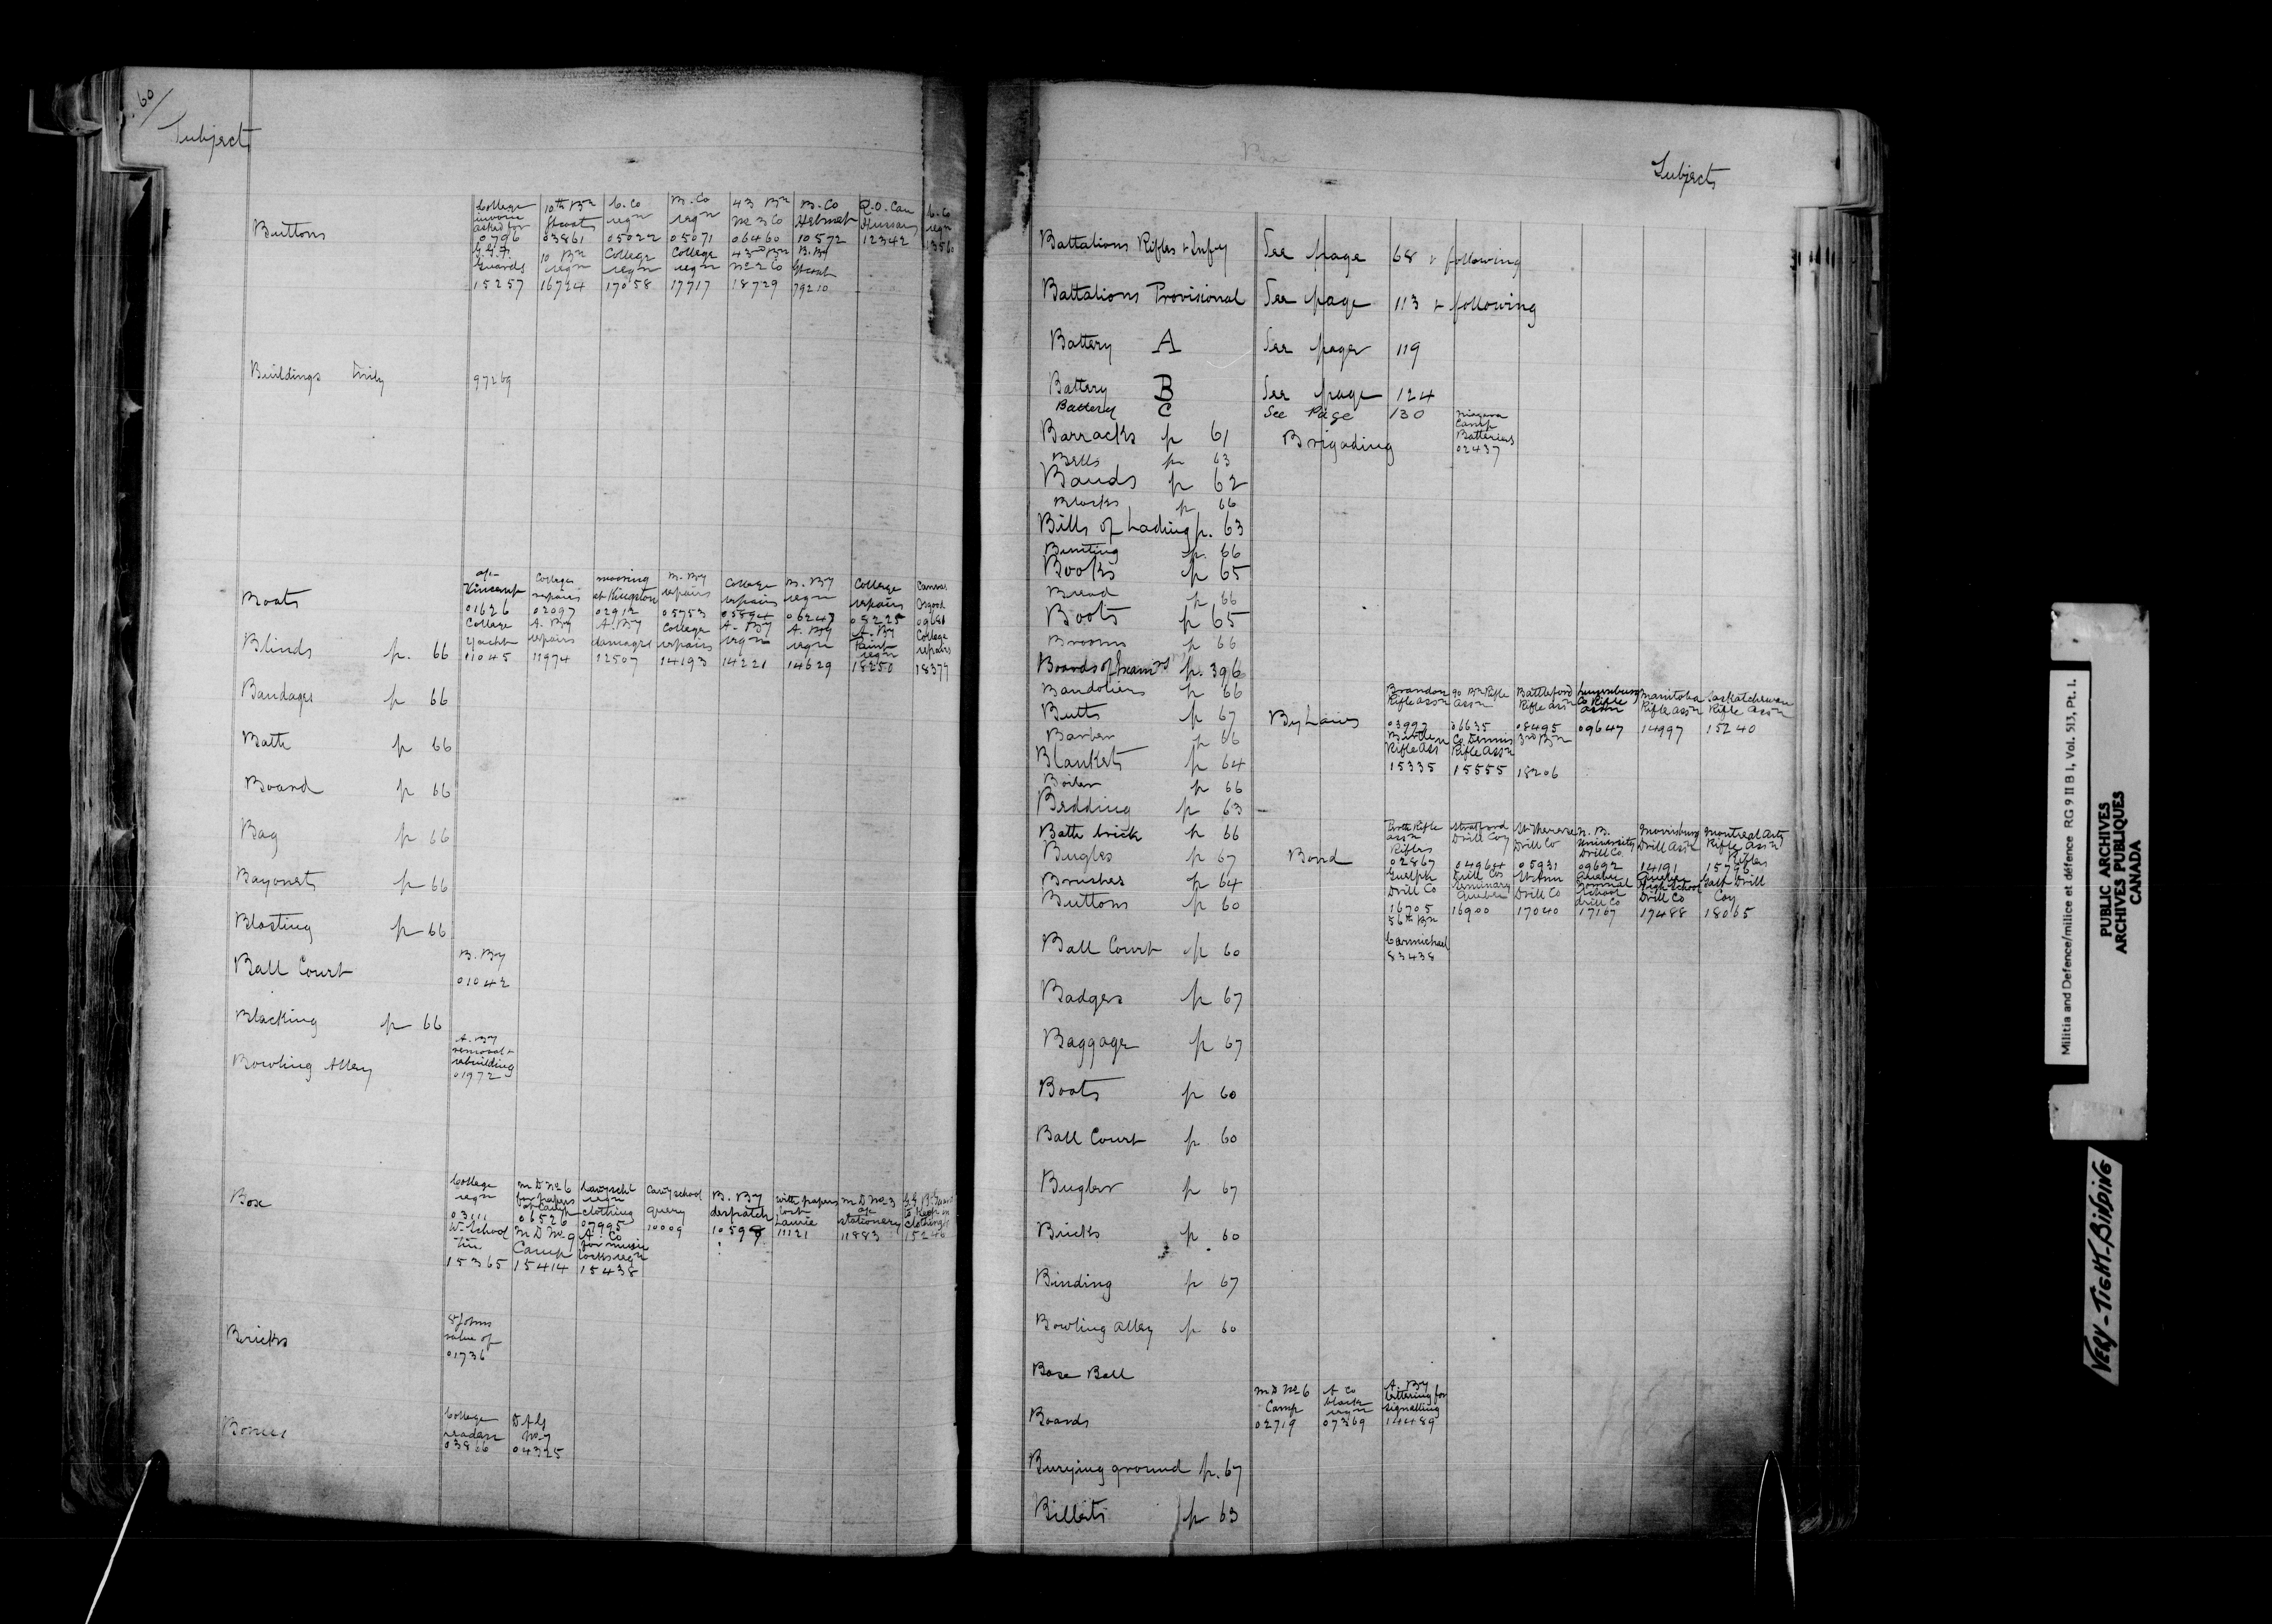 60/
Subject
Buttons
College invoice asked for 0796
10th Bn Gt coats 03861
C. Co reqn 05022
M. Co reqn 05071
43 Bn No 3 Co 06460
B. Co Helmet 10572
Q.O. Can Hussars 12342
C. Co reqn 13560
Guards 15257
10 Bn reqn 16724
College reqn 17058
College reqn 17717
43rd Bn No 2 Co 18729
B. By Gt coat 79210
Buildings 97269
Boats
01626
College repairs 02097
mooring at Kingston 02912
B. By repairs 05753
College repairs 05894
B. By reqn 06247
College repairs 09225
Canvas Osgood
Blinds p. 66
College Yacht 11045
A. By repairs 11974
A. By damages 12507
College repairs 14193
A. By reqn 14221
A. By reqn 14629
A. By Paint reqn 18250
College repairs 18377
Bandages p 66
Bath p 66
Board p 66
Bag p 66
Bayonets p 66
Blasting p 66
Ball Court
B. By 01042
Blacking p 66
Bowling Alley
A. By removal & rebuilding 01972
Box
College reqn 03111
M D No 6 for papers for Camp 06526
Cavy schl reqn clothing 07995
Cavy school query 10009
B. By despatch
with papers lost Laurie 11121
M D No 3 stationery 11883
15246
W. School tin 15365
M D No 9 Camp 15414
A. Co for music locks reqn 15438
Bricks
St Johns value of 01736
College 03866
D A G No 7 04325
Subjects
Battalions Rifles & Infy See page 68 & following
Battalions Provisional See page 113 & following
Battery A See page 119
Battery B See page 124
Battery C See Page 130
Barracks p 61
Brigading
Niagara Camp Batteries 02437
Bells p 63
Bands p 62
Blocks p 66
Bills of Lading p. 63
Bunting p. 66
Books p 65
Bread p 66
Boots p 65
Brooms p 66
Boards of Exams p. 396
Bandoliers p 66
Butts p 67
By Laws
Brandon Rifle assn 03997
90 Bn Rifle assn 06635
Battleford Rifle assn 08495
Lunenburg Co Rifle assn 09647
Manitoba Rifle assn 14997
Saskatchewan Rifle assn 15240
Barber p 66
Blankets p 64
Rifle Ass 15335
Co Dennis Rifle assn 15555
3rd Bn 18206
Boiler p 66
Bedding p 63
Bath brick p 66
Bugles p 67
Bond
Rifle assn Rifles 02867
Stratford Drill Coy 04964
St Therese Drill Co 05931
N. B. University Drill Co 09692
Morrisburg Drill Assn 14191
Montreal Arty Rifle assn Rifles 15796
Brushes p 64
Buttons p 60
Guelph Drill Co 16705
Drill Cos Seminary Quebec 16900
St Ann Drill Co 17040
Quebec Normal School drill Co 17167
Quebec High School Drill Co 17488
Galt Drill Coy 18065
56th Bn Carmichael 83438
Ball Court p 60
Badges p 67
Baggage p 67
Boats p 60
Ball Court p 60
Bugler p 67
Bricks p 60
Binding p 67
Bowling Alley p 60
Base Ball
Boards
M D No 6 Camp 02719
A Co black reqn 07369
A. By lettering for signalling 14489
Burying ground p. 67
Billets p 63
Militia and Defence/milice et défence RG 9 II B 1, Vol. 513, Pt. 1.
PUBLIC ARCHIVES
ARCHIVES PUBLIQUES
CANADA
VERY-TIGHT-BINDING